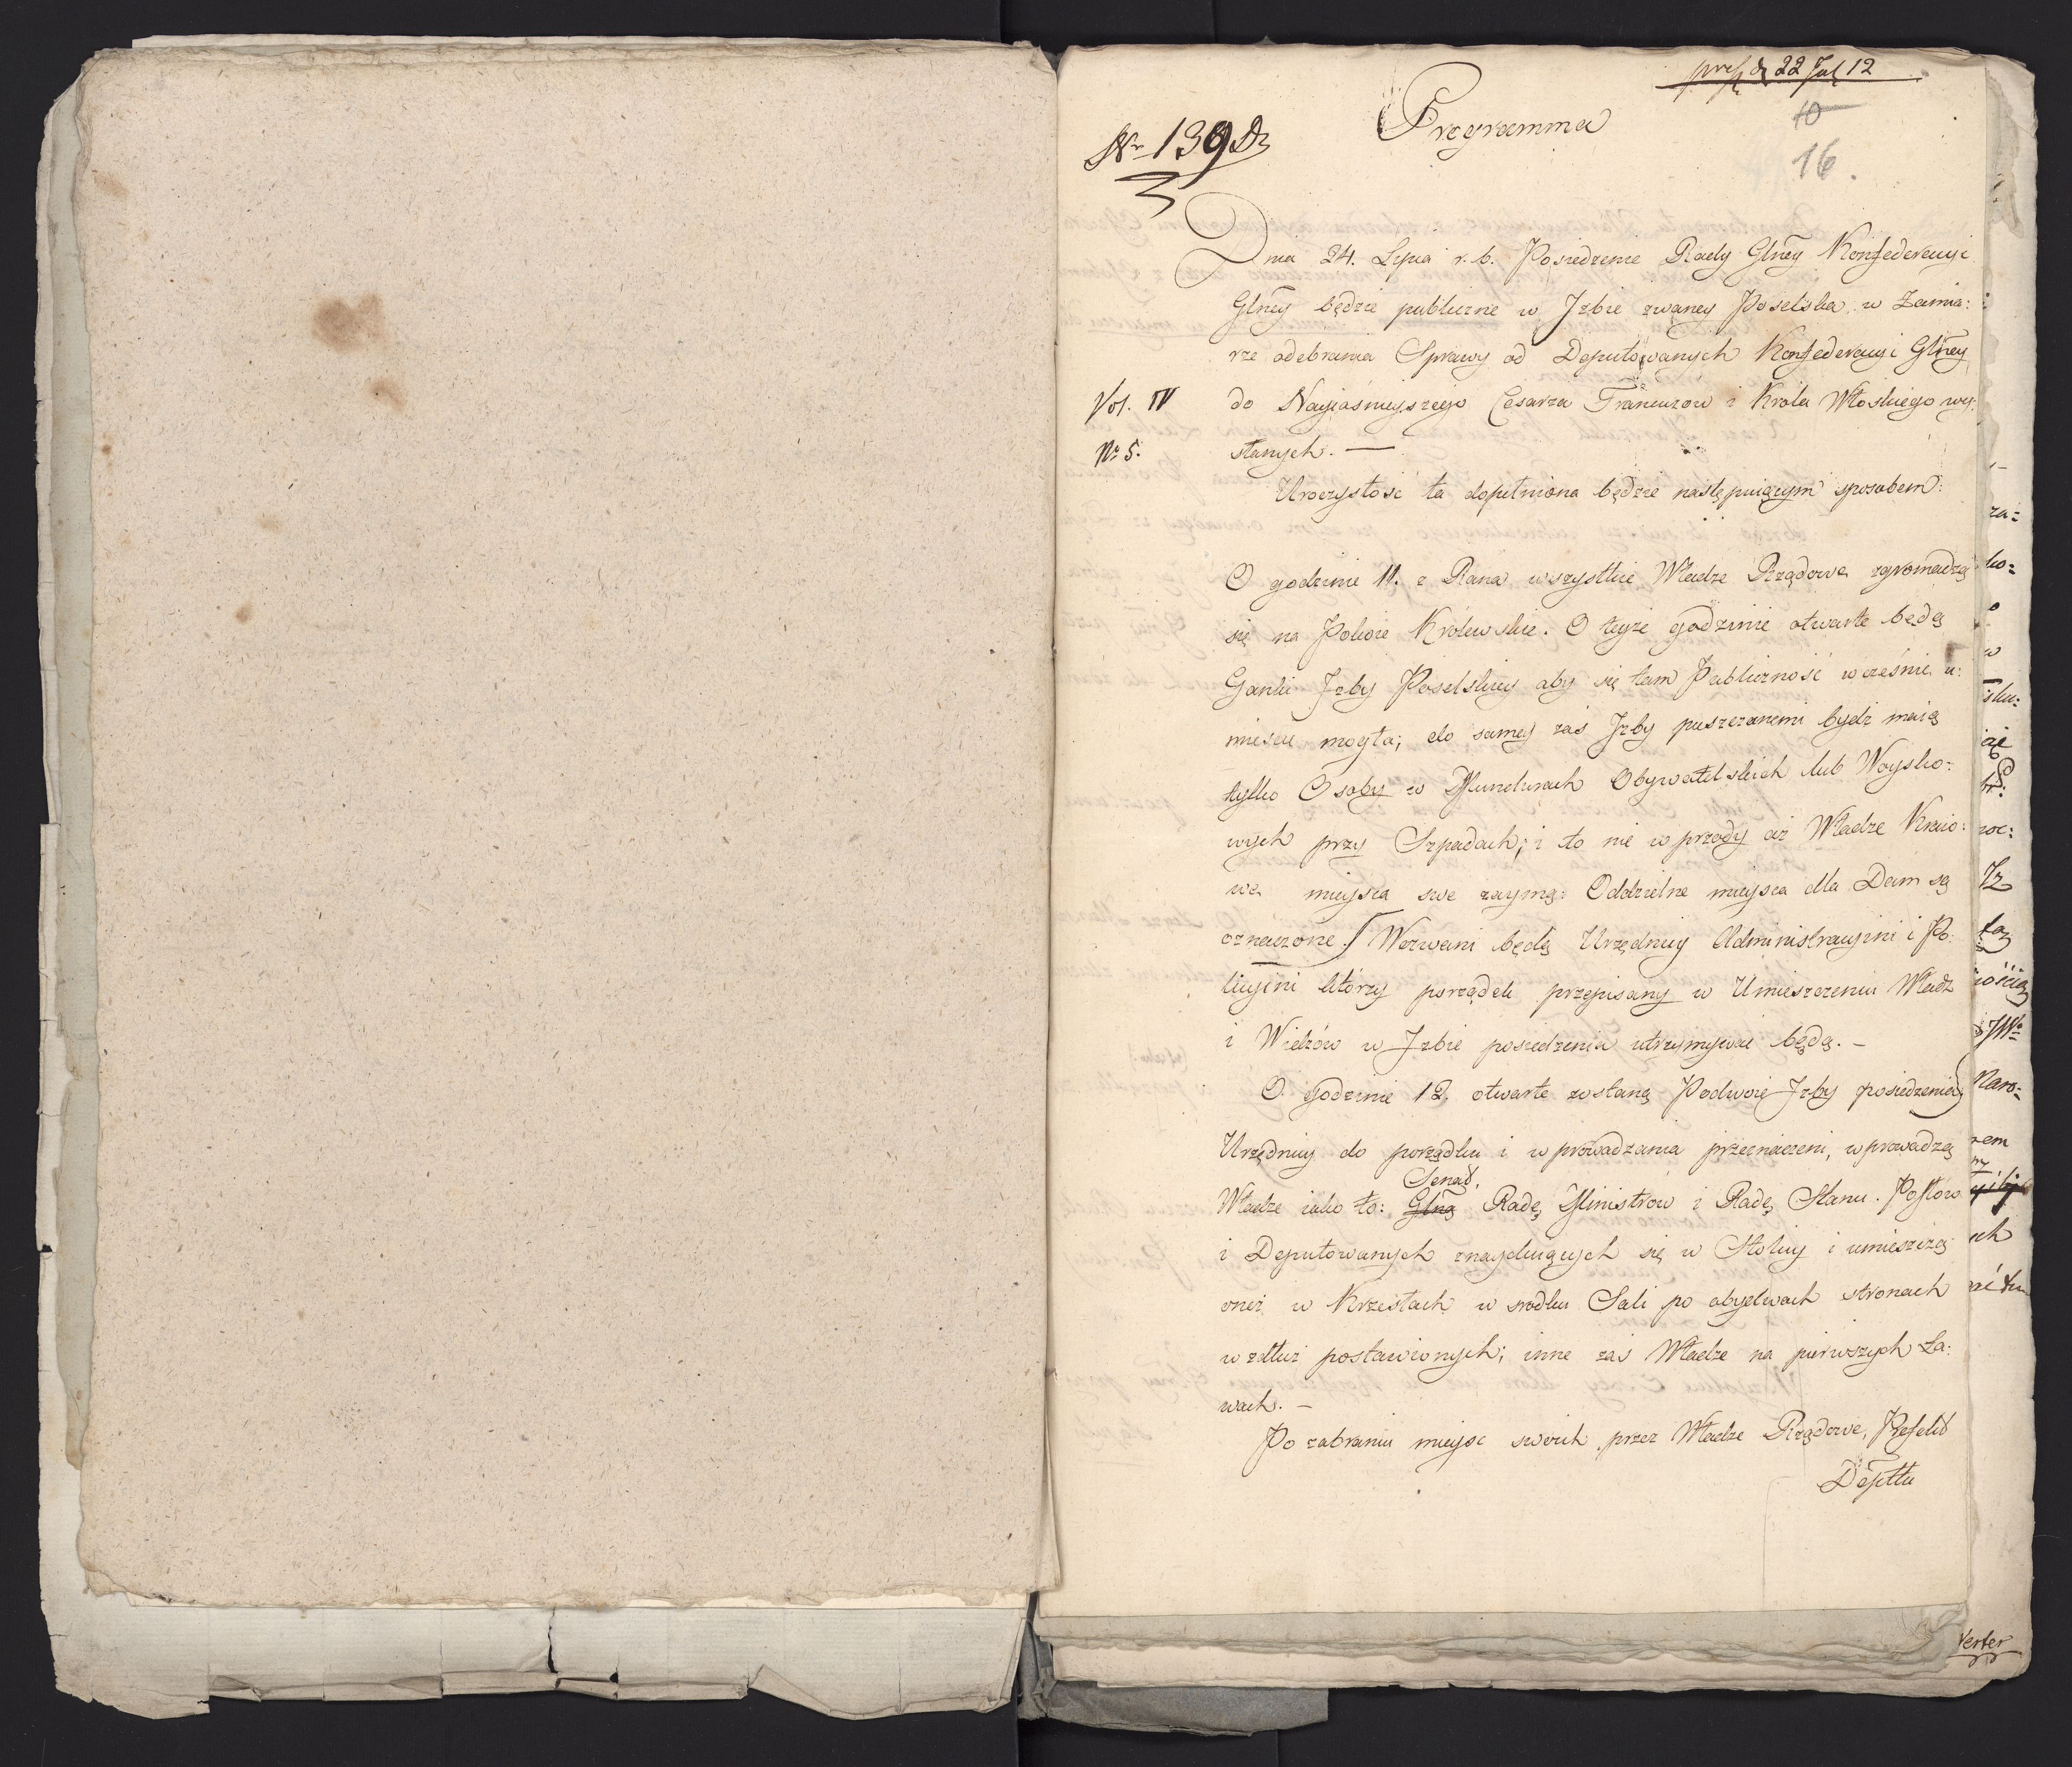 22 Jul 12
10
16.
Programma
Nr 139 Dz
Dnia 24. Lipca r. b. Posiedzenie Rady Głney Konfederacyi
Głney będzie publiczne w Jzbie zwaney Poselska w Zamia:
rze odebrania Sprawy od Deputowanych Konfederacyi Głney
Vol. IV
do Nayjaśnieyszego Cesarza Francuzow i Króla Włoskiego wy:
Nr 5.
słanych. —
Uroczystość ta dopełniona będzie następuiącym sposobem:
O godzinie 11. z Rana wszystkie Władze Rządowe zgromadzą
się na Pokoie Królewskie. O teyże godzinie otwarte będą
Ganki Jzby Poselskiey aby się tam Publiczność wcześnie u:
mieścić mogła; do samey zaś Jzby puszczanemi bydź maią
tylko Osoby w Mundurach Obywatelskich lub Woysko:
wych przy Szpadach; i to nie wprzody aż Władze Kraio:
we mieysca swe zaymą: Oddzielne mieysca dla Dam są
oznaczone. Wezwani będą Urzędnicy Administracyini i Po:
licyini którzy porządek przepisany w Umieszczeniu Władz
i Widzów w Jzbie posiedzenia utrzymywać będą. —
O godzinie 12. otwarte zostaną Podwoie Jzby posiedzenia,
Urzędnicy do porządku i wprowadzania przeznaczeni, wprowadzą
Senat,
Władze iako to: Głną Radę Ministrów i Radę Stanu. Posłow
i Deputowanych znayduiących się w Stolicy i umieszczą
oneż w Krzesłach w srodku Sali po obydwach stronach
wzdłuż postawionych; inne zaś Władze na pierwszych Ła:
wach. —
Po zabraniu mieysc swoich przez Władze Rządowe, Prefekt
Depttu
Verter